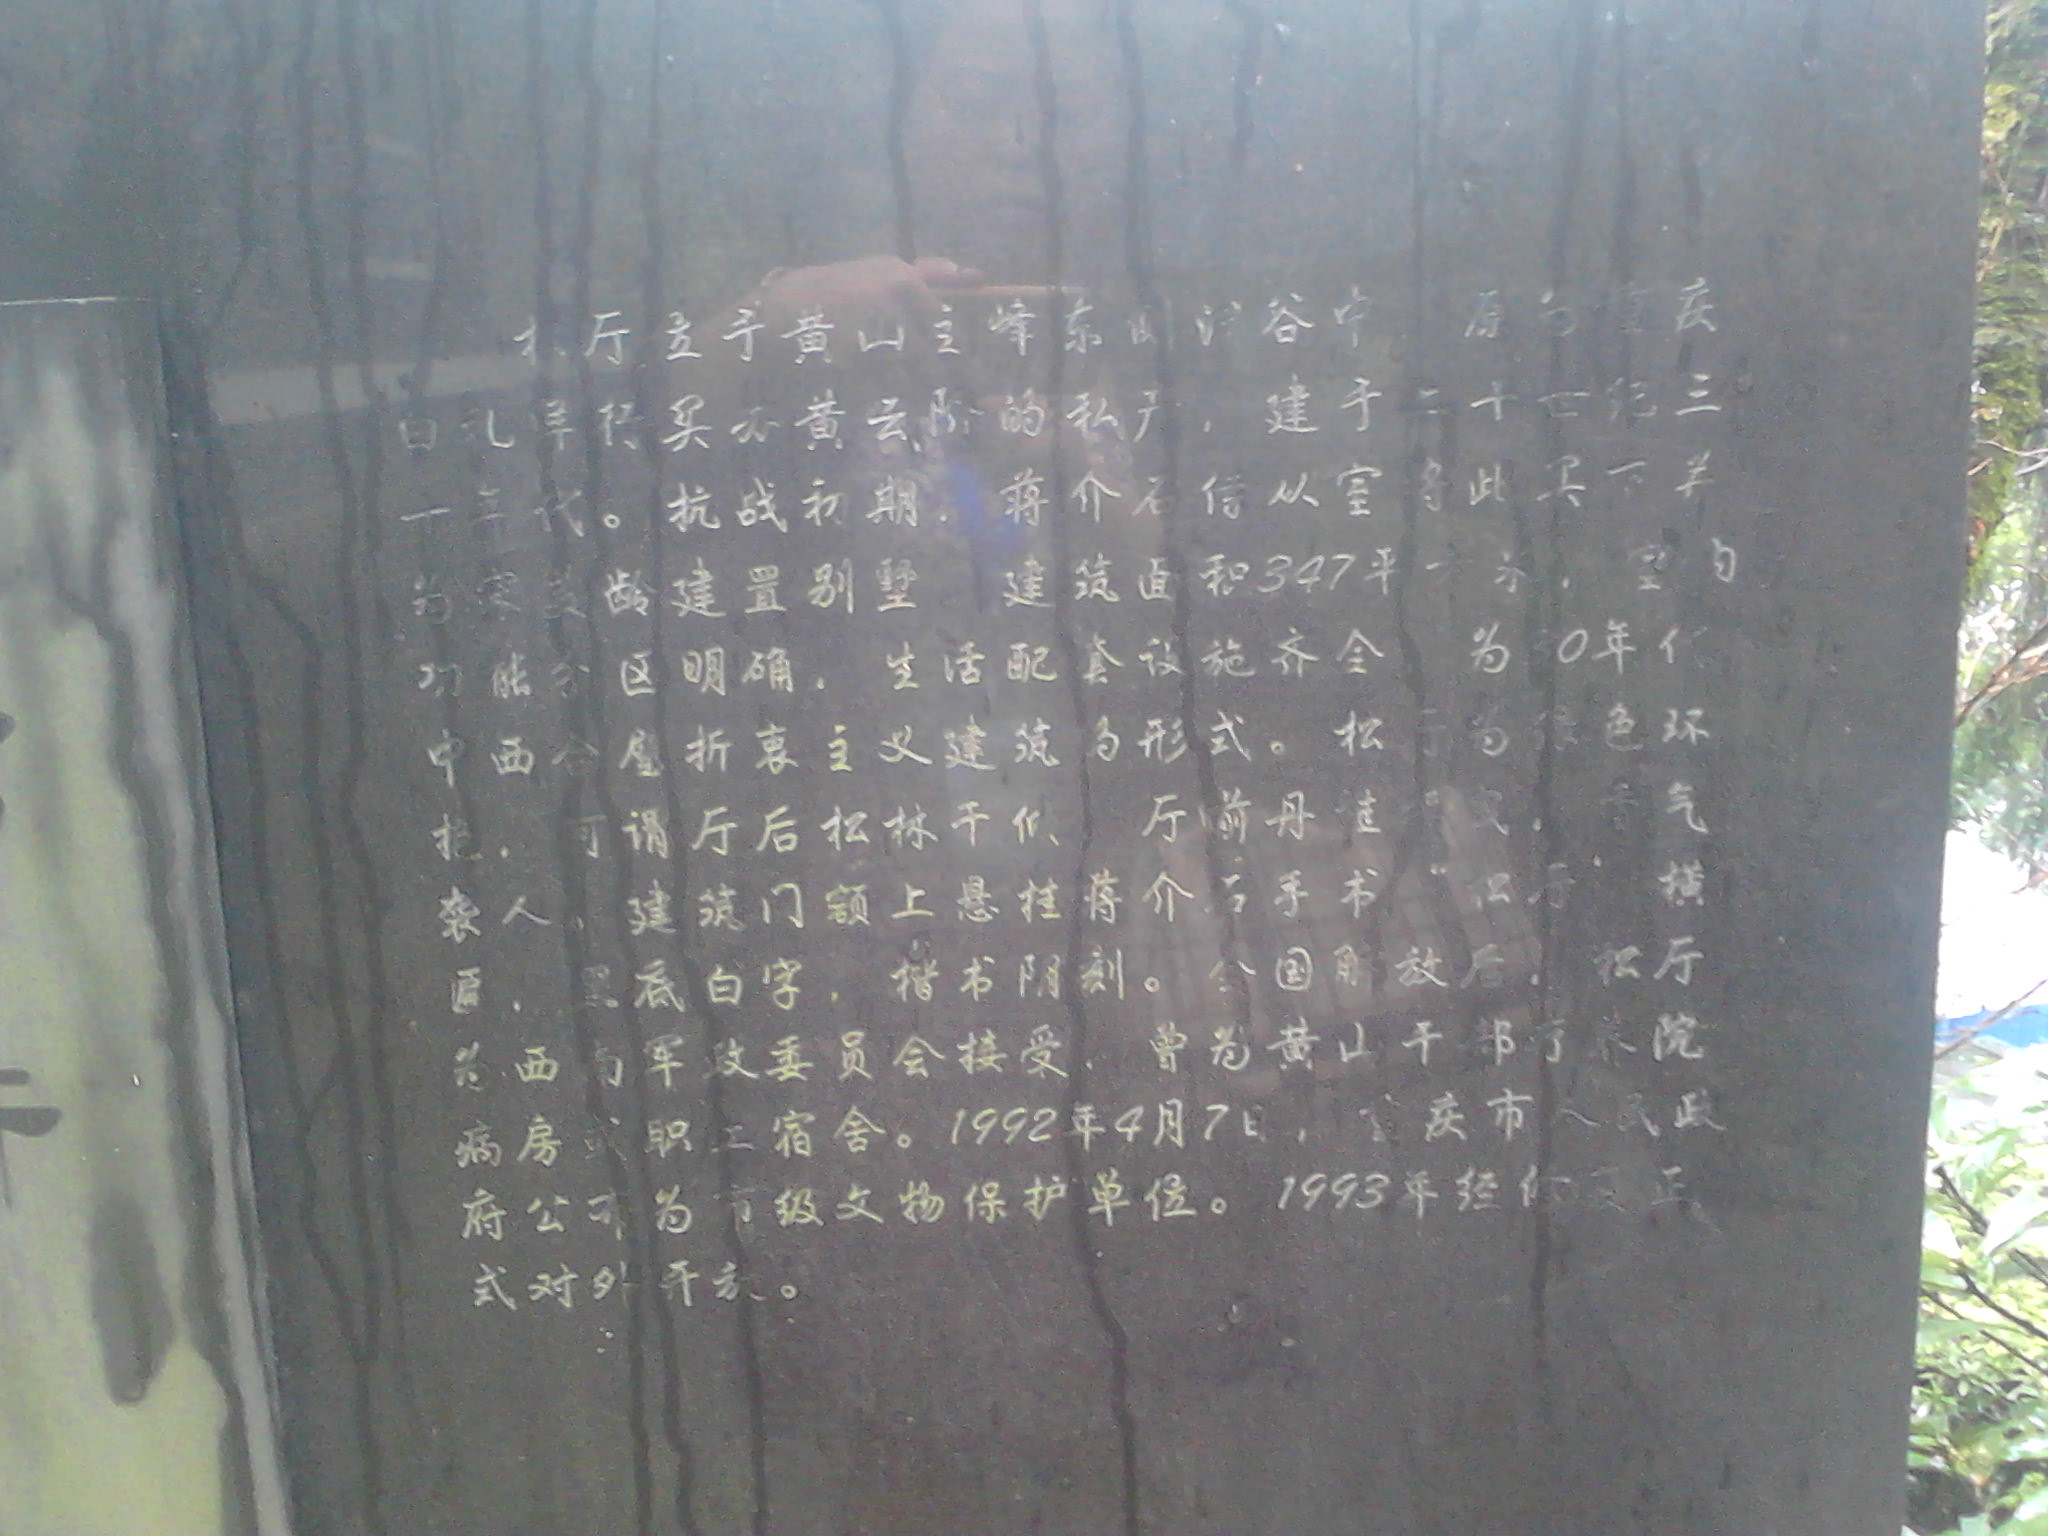 松厅位于黄山主峰东侧深谷中,原为重庆
白礼洋行买办黄云阶的私产,建于二十世纪三
十年代。抗战初期,蒋介石侍从室将此买下并
为宋美龄建置别墅,建筑面积347平方米,室内
功能分区明确,生活配套设施齐全,为30年代
中西合璧折衷主义建筑的形式。松厅为绿色环
抱,可谓厅后松林千仞,厅前丹桂,香气
袭人。建筑门额上悬挂蒋介石手书“松厅”横
匾,黑底白字,楷书阴刻。全国解放后,松厅
为西南军政委员会接受,曾为黄山干部疗养院
病房或职工宿舍。1992年4月7日,重庆市人民政
府公布为市级文物保护单位。1993年经修复正
式对外开放。